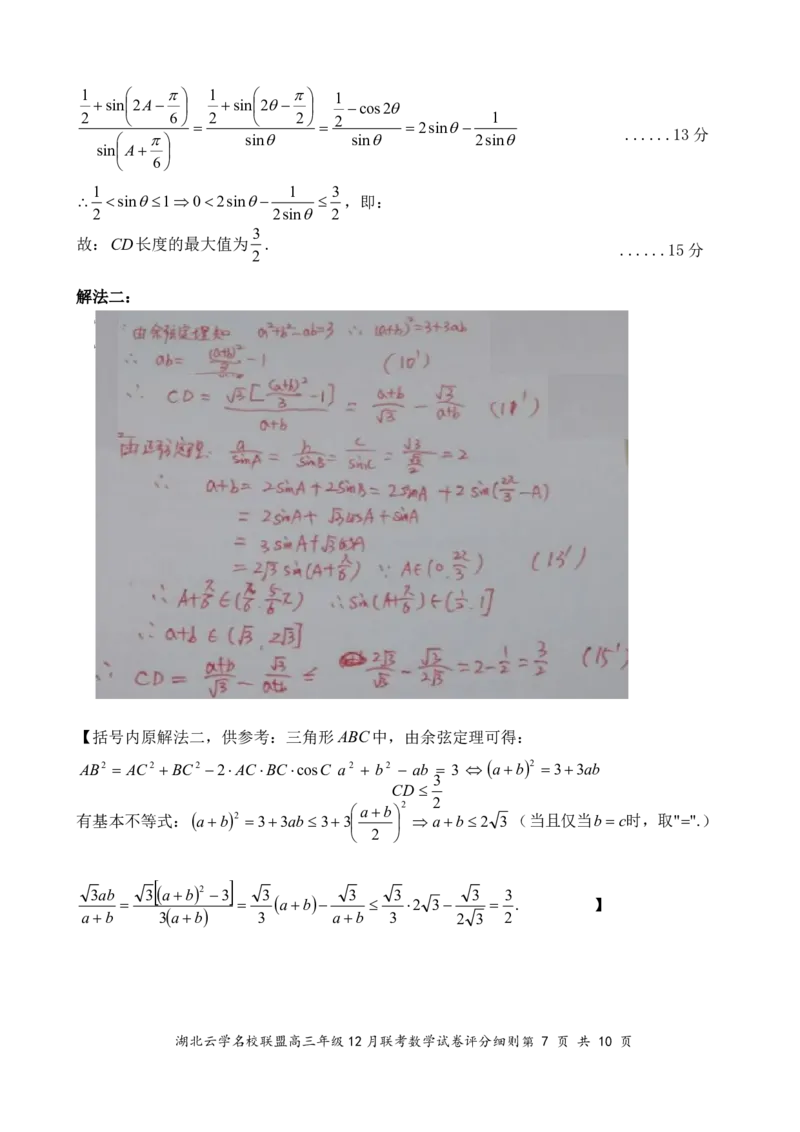 (1/2+sin(2A−π/6))/sin(A+π/6)=(1/2+sin(2θ−π/2))/sinθ=(1/2−cos2θ)/sinθ=2sinθ−1/(2sinθ) ......13分
∴1/2<sinθ≤1⇒0<2sinθ−1/(2sinθ)≤3/2，即：
故：CD长度的最大值为3/2. ......15分
解法二：
∵由余弦定理知 a²+b²−ab=3 ∴(a+b)²=3+3ab
∴ ab=(a+b)²/3−1 (10')
∴ CD=√3[(a+b)²/3−1]/(a+b)=(a+b)/√3−√3/(a+b) (11')
由正弦定理：a/sinA=b/sinB=c/sinC=√3/(√3/2)=2
∴ a+b=2sinA+2sinB=2sinA+2sin(2π/3−A)
=2sinA+√3cosA+sinA
=3sinA+√3cosA
=2√3sin(A+π/6) ∵A∈(0,2π/3) (13')
∴A+π/6∈(π/6,5/6π) ∴sin(A+π/6)∈(1/2,1]
∴a+b∈(√3,2√3]
∴ CD=(a+b)/√3−√3/(a+b)≤2√3/√3−√3/2√3=2−1/2=3/2 (15')
【括号内原解法二，供参考：三角形ABC中，由余弦定理可得：
AB²=AC²+BC²−2·AC·BC·cosC a²+b²−ab=3⇔(a+b)²=3+3ab
CD≤3/2
有基本不等式：(a+b)²=3+3ab≤3+3((a+b)/2)²⇒a+b≤2√3（当且仅当b=c时，取"=".）
√3ab/(a+b)=√3[(a+b)²−3]/3(a+b)=√3/3(a+b)−√3/(a+b)≤√3/3·2√3−√3/2√3=3/2. 】
湖北云学名校联盟高三年级12月联考数学试卷评分细则第 7 页 共 10 页